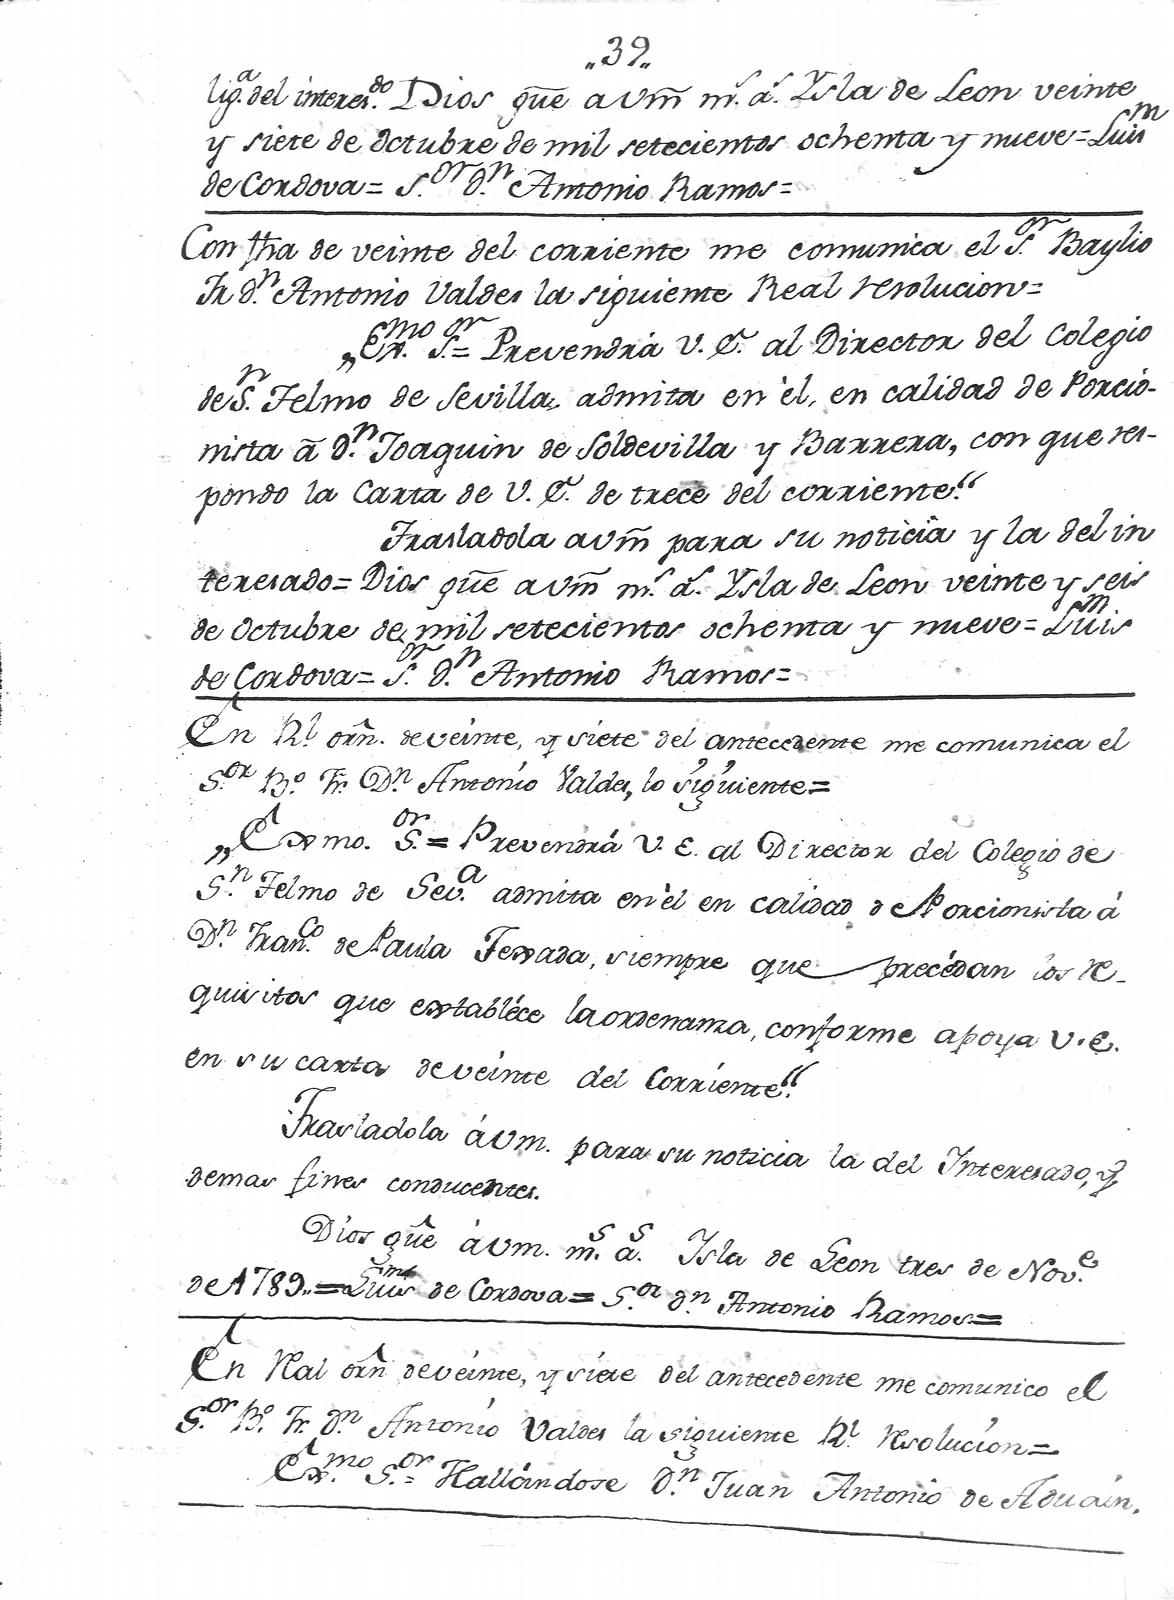 „39„
lig.ª del interes.do Dios gūe a vm̄ m.s a.s Ysla de Leon veinte
y siete de Octubre de mil setecientos ochenta y nueve=Luis m
de Cordova= S.or d.n Antonio Ramos=
Con fha de veinte del corriente me comunica el S.or Baylio
Fr d.n Antonio Valdes la siguiente Real resolucion=
„Ex.mo S.or= Prevendrá V. E. al Director del Colegio
de S.n Telmo de Sevilla, admita en èl, en calidad de Porcio-
nista ā D.n Joaquin de Soldevilla y Barrera, con que res-
pondo la Carta de V. E. de trece del corriente."
Trasladola a vm̄ para su noticia y la del in
teresado= Dios gūe a vm̄ m.s a.s Ysla de Leon veinte y seis
de Octubre de mil setecientos ochenta y nueve= Luis m
de Cordova= S.or D.n Antonio Ramos=
En Rl. orn̂. de veinte, y siete del antecedente me comunica el
S.or B.o Fr. D.n Antonio Valdes, lo siguiente=
„Exmo. S.or= Prevendrá V. E. al Director del Colegio de
S.n Telmo de Sev.a admita en èl en calidad de Porcionista á
D.n Fran.co de Paula Texada, siempre que precédan los re-
quisitos que extabléce la ordenanza, conforme apoya V. E.
en su carta de veinte del Corriente."
Trasladola á vm. para su noticia la del Interesado, y
demas fines conducentes.
Dios gûe á vm. m.s a.s Isla de Leon tres de Nov.e
de 1789.=Luis mo de Cordova= S.or d.n Antonio Ramos=
En Real orn̂ de veinte, y siete del antecedente me comunico el
S.or B.o Fr. d.n Antonio Valdes la siguiente Rl. Resolucion=
Ex.mo S.or= Hallándose D.n Juan Antonio de Aduáin,